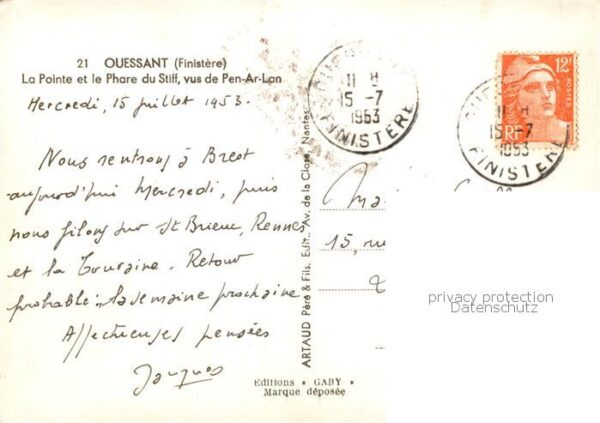 21 OUESSANT (Finistère)
La Pointe et le Phare du Stiff, vus de Pen-Ar-Lan
Mercredi, 15 juillet 1953.
Nous rentrons à Brest
aujourd'hui Mercredi, puis
nous filons sur St Brieuc, Rennes
et la Touraine. Retour
probable : la semaine prochaine
Affectueuses pensées
Jacques
Editions « GABY »
Marque déposée
ARTAUD Père & Fils, Edit., Av. de la Close, Nantes
11 H
15 -7
1953
FINISTERE
12F
POSTES
RF
11 H
15 -7
1953
FINISTERE
15, rue
privacy protection
Datenschutz